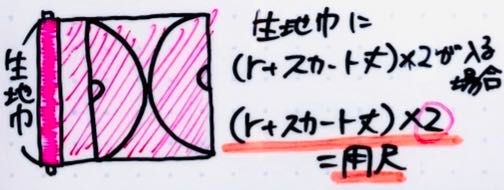 生地巾
生地巾に
(r+スカート丈)×2が入る
場合
(r+スカート丈)×2
=用尺